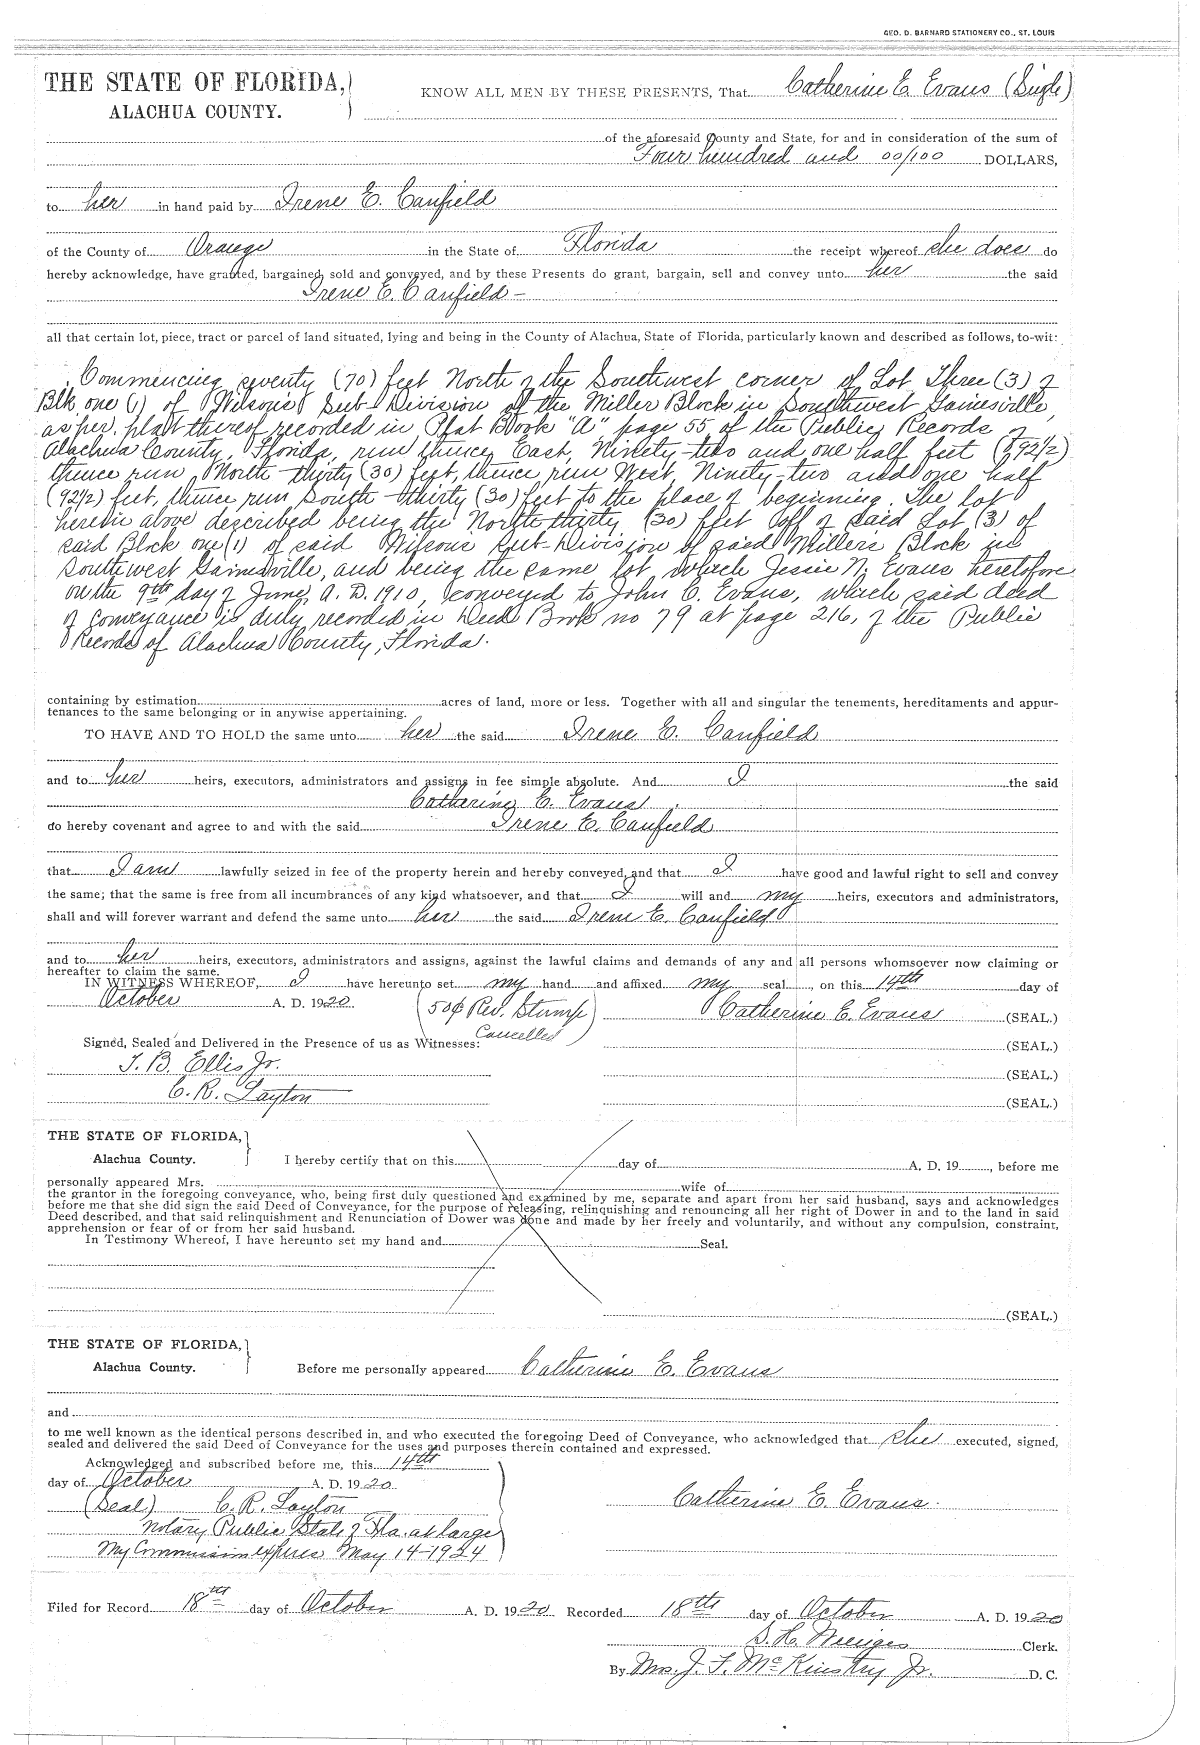 GEO. D. BARNARD STATIONERY CO., ST. LOUIS
THE STATE OF FLORIDA,
ALACHUA COUNTY.
KNOW ALL MEN BY THESE PRESENTS, That Catherine E. Evans (Single)
of the aforesaid County and State, for and in consideration of the sum of
Four hundred and 00/100 DOLLARS,
to her in hand paid by Irene E. Canfield
of the County of Orange in the State of Florida the receipt whereof she does do
hereby acknowledge, have granted, bargained, sold and conveyed, and by these Presents do grant, bargain, sell and convey unto her the said
Irene E. Canfield -
all that certain lot, piece, tract or parcel of land situated, lying and being in the County of Alachua, State of Florida, particularly known and described as follows, to-wit:
Commencing seventy (70) feet North of the Southwest corner of Lot Three (3) of
Blk one (1) of Wilson's Sub-Division of the Miller Block in Southwest Gainesville,
as per plat thereof recorded in Plat Book "A" page 55 of the Public Records of
Alachua County, Florida, run thence East, Ninety-two and one half feet (92½)
thence run North thirty (30) feet, thence run West, Ninety-two and one half
(92½) feet, thence run South thirty (30) feet to the place of beginning. The lot
herein above described being the North thirty (30) feet off of said Lot (3) of
said Block one (1) of said Wilson's Sub-Division of said Miller's Block in
Southwest Gainesville, and being the same lot which Jessie N. Evans heretofore
on the 9th day of June, A. D. 1910, conveyed to John C. Evans, which said deed
of conveyance is duly recorded in Deed Book no 79 at page 216, of the Public
Records of Alachua County, Florida.
containing by estimation acres of land, more or less. Together with all and singular the tenements, hereditaments and appur-
tenances to the same belonging or in anywise appertaining.
TO HAVE AND TO HOLD the same unto her the said Irene E. Canfield
and to her heirs, executors, administrators and assigns in fee simple absolute. And I the said
Catherine E. Evans
do hereby covenant and agree to and with the said Irene E. Canfield
that I am lawfully seized in fee of the property herein and hereby conveyed, and that I have good and lawful right to sell and convey
the same; that the same is free from all incumbrances of any kind whatsoever, and that I will and my heirs, executors and administrators,
shall and will forever warrant and defend the same unto her the said Irene E. Canfield
and to her heirs, executors, administrators and assigns, against the lawful claims and demands of any and all persons whomsoever now claiming or
hereafter to claim the same.
IN WITNESS WHEREOF, I have hereunto set my hand and affixed my seal, on this 14th day of
October A. D. 1920 (50¢ Rev. Stamp Cancelled) Catherine E. Evans (SEAL.)
Signed, Sealed and Delivered in the Presence of us as Witnesses: (SEAL.)
T. B. Ellis Jr. (SEAL.)
C. R. Layton (SEAL.)
THE STATE OF FLORIDA,
Alachua County. I hereby certify that on this day of A. D. 19, before me
personally appeared Mrs. wife of
the grantor in the foregoing conveyance, who, being first duly questioned and examined by me, separate and apart from her said husband, says and acknowledges
before me that she did sign the said Deed of Conveyance, for the purpose of releasing, relinquishing and renouncing all her right of Dower in and to the land in said
Deed described, and that said relinquishment and Renunciation of Dower was done and made by her freely and voluntarily, and without any compulsion, constraint,
apprehension or fear of or from her said husband.
In Testimony Whereof, I have hereunto set my hand and Seal.
(SEAL.)
THE STATE OF FLORIDA,
Alachua County. Before me personally appeared Catherine E. Evans
and
to me well known as the identical persons described in, and who executed the foregoing Deed of Conveyance, who acknowledged that she executed, signed,
sealed and delivered the said Deed of Conveyance for the uses and purposes therein contained and expressed.
Acknowledged and subscribed before me, this 14th
day of October A. D. 1920
(Seal) C. R. Layton
Catherine E. Evans.
Notary Public State of Fla. at large
My Commission expires May 14-1924
Filed for Record 18th day of October A. D. 1920 Recorded 18th day of October A. D. 1920
S. H. Wienges Clerk.
By Mrs. J. F. McKinstry Jr. D. C.